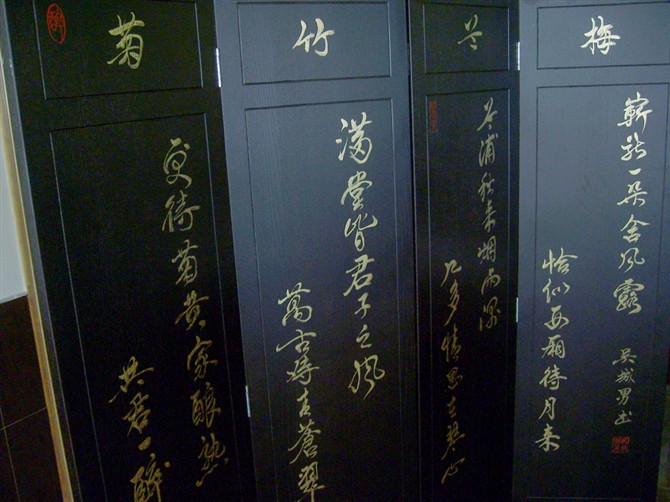 梅
嶄新一朵含風露
恰似西厢待月来
兰
兰浦秋来烟雨深
几多情思在琴心
竹
满堂皆君子之风
萬古对青蒼翠
菊
更待菊黄家酿熟
共君一醉